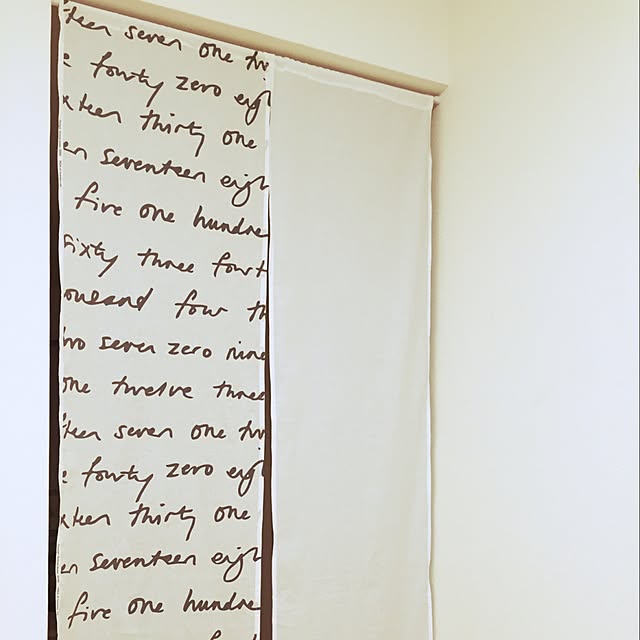 teen seven one tw
e fourty zero eigh
xteen thirty one
en seventeen eigh
five one hundre
sixty three fourt
ousand four th
two seven zero nine
one twelve three
teen seven one tw
e fourty zero eigh
xteen thirty one
en seventeen eigh
five one hundre